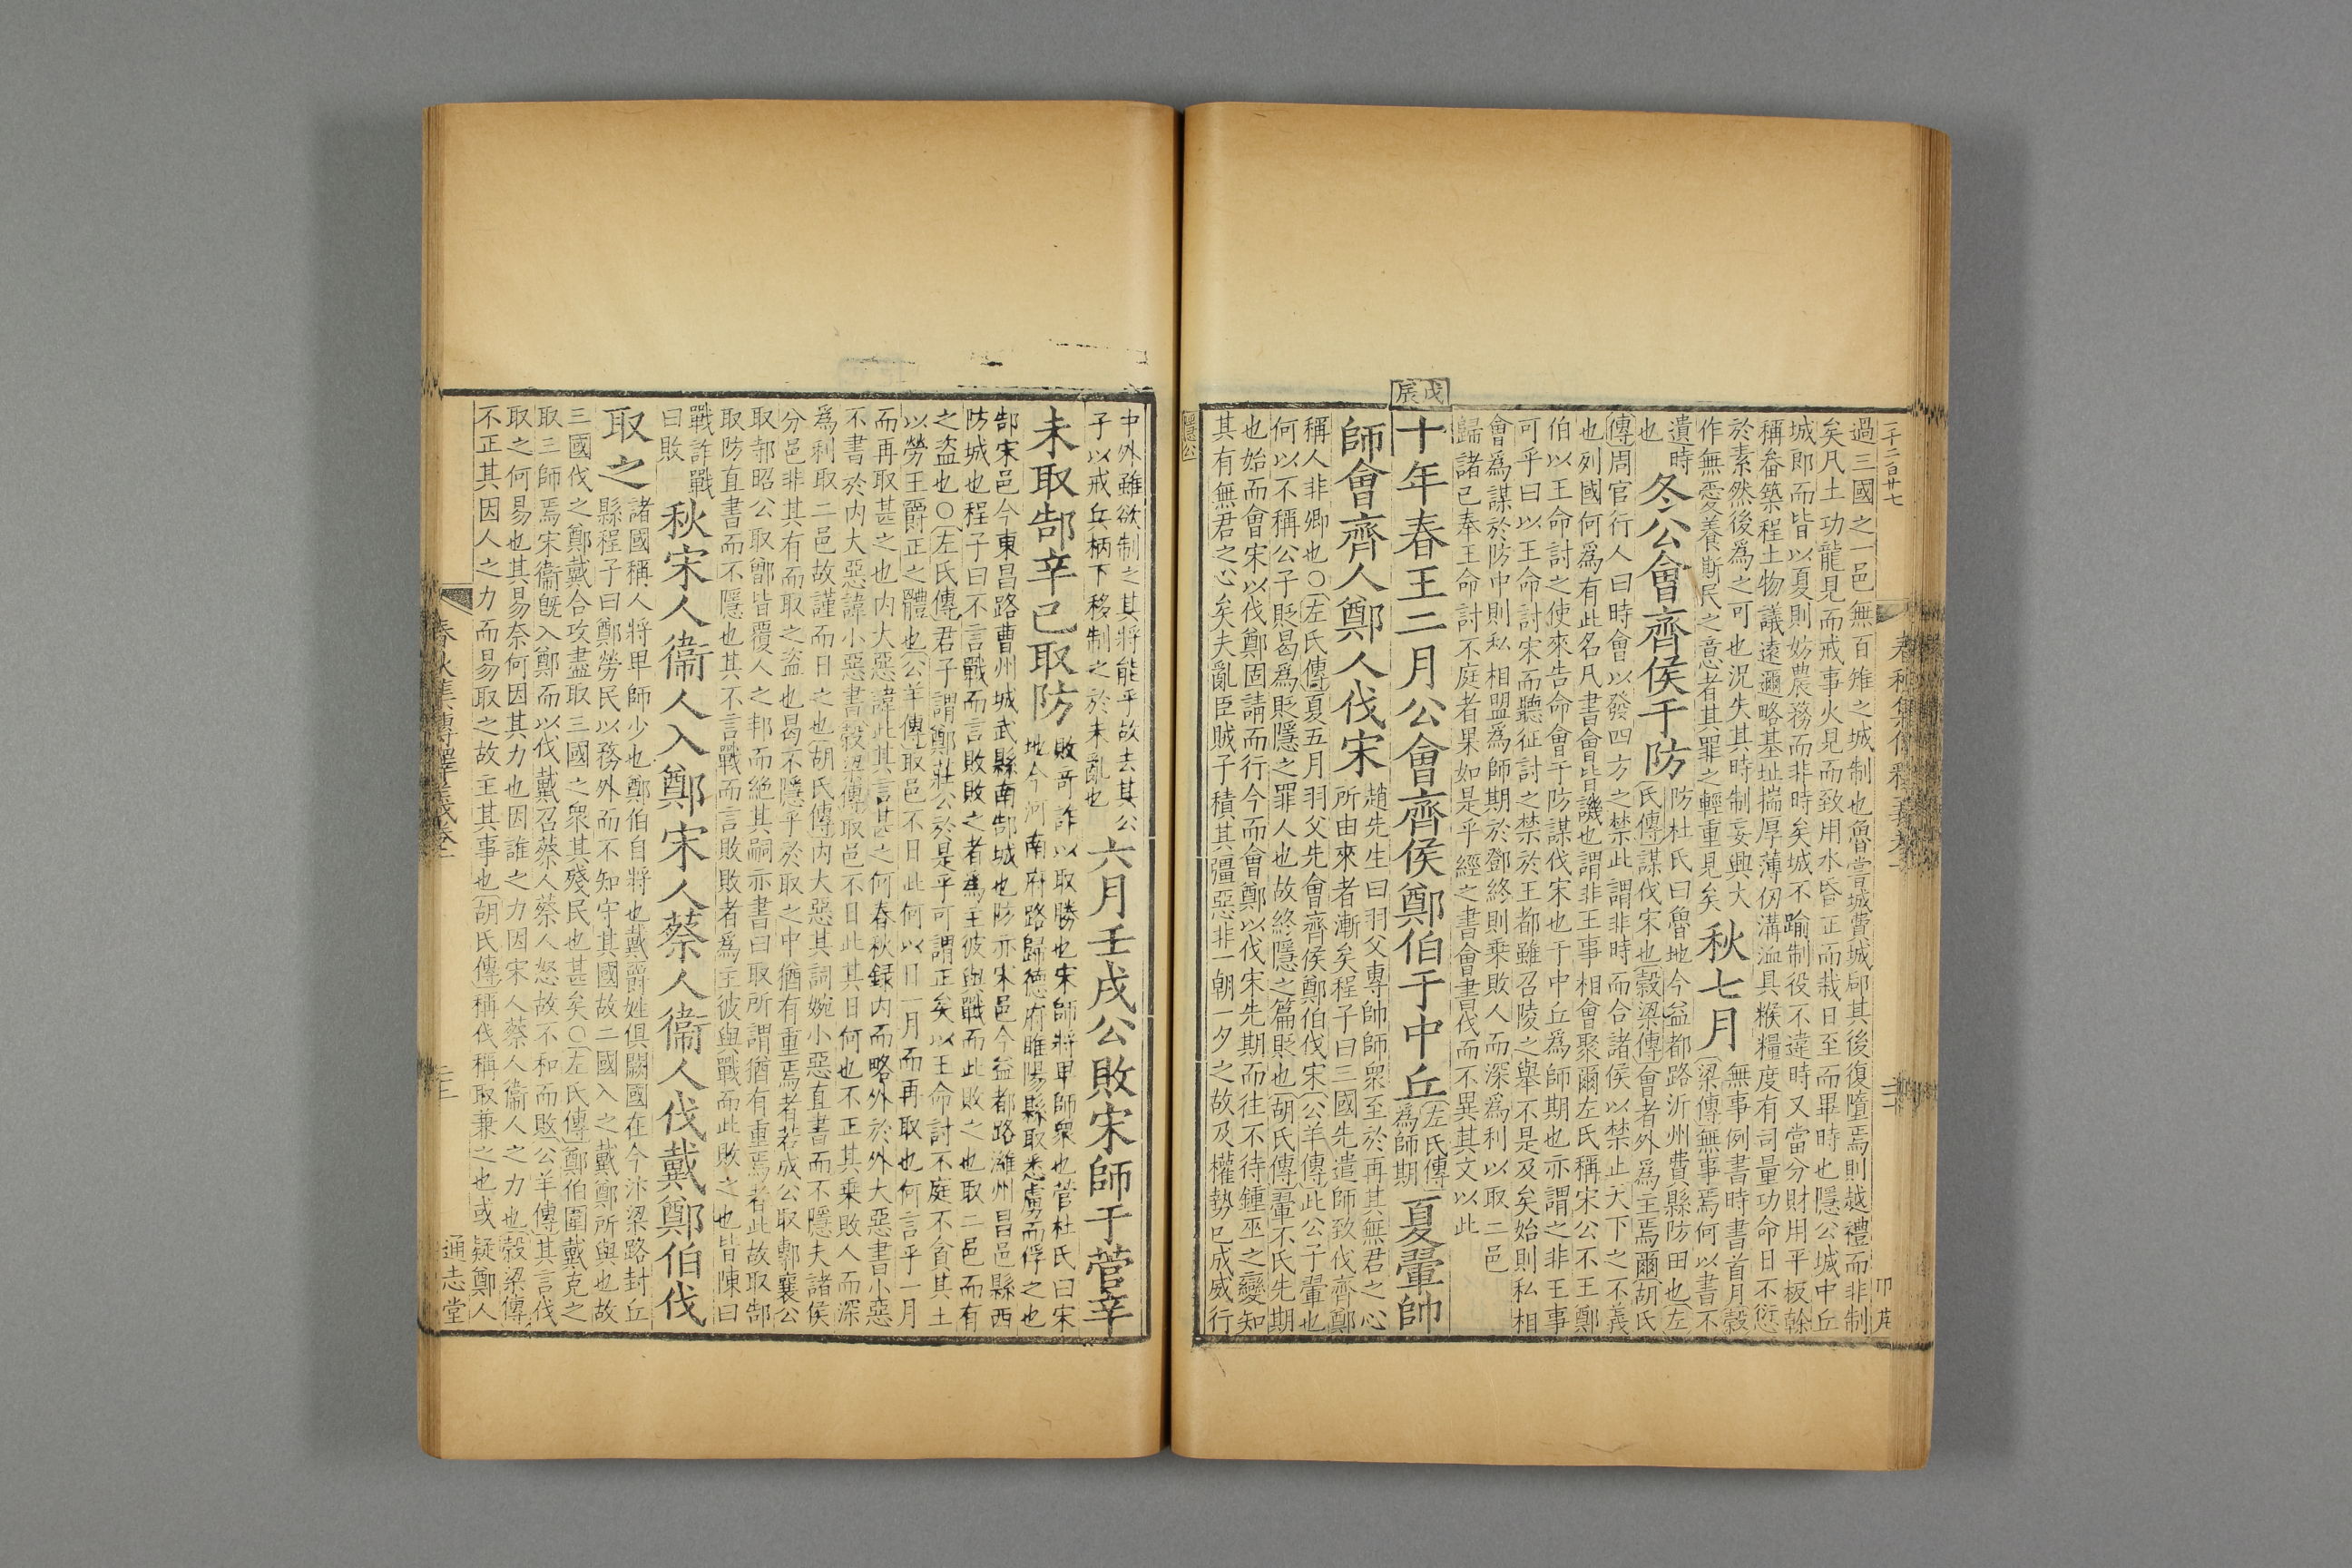 三千二百廿七
春秋集傳釋義卷一
過三國之一邑無百雉之城制也魯嘗城費城郈其後復墮焉則越禮而非制
矣凡土功龍見而戒事火見而致用水昏正而栽日至而畢時也隱公城中丘
城郎而皆以夏則妨農務而非時矣城不踰制役不違時又當分財用平板榦
稱畚築程土物議遠邇略基址揣厚薄仞溝洫具餱糧度有司量功命日不愆
於素然後為之可也況失其時制妄興大
作無愛養斯民之意者其罪之輕重見矣
秋七月
無事例書時書首月穀
梁傳無事焉何以書不
遺時
也
冬公會齊侯于防
防杜氏曰魯地今益都路沂州費縣防田也左
氏傳謀伐宋也穀梁傳會者外為主焉爾胡氏
傳周官行人曰時會以發四方之禁此謂非時而合諸侯以禁止天下之不義
也列國何為有此名凡書會皆譏也謂非王事相會聚爾左氏稱宋公不王鄭
伯以王命討之使來告命會于防謀伐宋也于中丘為師期也亦謂之非王事
可乎曰以王命討宋而聽征討之禁於王都雖召陵之舉不是及矣始則私相
會為謀於防中則私相盟為師期於鄧終則乗敗人而深為利以取二邑
歸諸已奉王命討不庭者果如是乎經之書會書伐而不異其文以此
戊辰
十年春王二月公會齊侯鄭伯于中丘
左氏傳
為師期
夏翬帥
師會齊人鄭人伐宋
趙先生曰羽父專帥師衆至於再其無君之心
所由來者漸矣程子曰三國先遣師致伐齊鄭
稱人非卿也○左氏傳夏五月羽父先會齊侯鄭伯伐宋公羊傳此公子翬也
何以不稱公子貶曷為貶隱之罪人也故終隱之篇貶也胡氏傳翬不氏先期
也始而會宋以伐鄭固請而行今而會鄭以伐宋先期而往不待鍾巫之變知
其有無君之心矣夫亂臣賊子積其彊惡非一朝一夕之故及權勢已成威行
隱公
中外雖欲制之其將能乎故去其公
子以戒兵柄下移制之於未亂也
六月壬戌公敗宋師于菅辛
未取郜辛已取防
敗奇詐以取勝也宋師將卑師衆也菅杜氏曰宋
地今河南府路歸德府睢陽縣取悉虜而俘之也
郜宋邑今東昌路曹州城武縣南郜城也防亦宋邑今益都路濰州昌邑縣西
防城也程子曰不言戰而言敗敗之者為主彼與戰而此敗之也取二邑而有
之盜也○左氏傳君子謂鄭莊公於是乎可謂正矣以王命討不庭不貪其土
以勞王爵正之體也公羊傳取邑不日此何以日一月而再取也何言乎一月
而再取甚之也内大惡諱此其言甚之何春秋録内而略外於外大惡書小惡
不書於内大惡諱小惡書穀梁傳取邑不日此其日何也不正其乗敗人而深
爲利取二邑故謹而日之也胡氏傳内大惡其詞婉小惡直書而不隱夫諸侯
分邑非其有而取之盜也曷不隱乎於取之中猶有重焉者若成公取鄟襄公
取邿昭公取鄫皆覆人之邦而絶其嗣亦書曰取所謂猶有重焉者此故取郜
取防直書而不隱也其不言戰而言敗敗者爲主彼與戰而此敗之也皆陳曰
戰詐戰
曰敗
秋宋人衞人入鄭宋人蔡人衞人伐戴鄭伯伐
取之
諸國稱人將卑師少也鄭伯自將也戴爵姓俱闕國在今汴梁路封丘
縣程子曰鄭勞民以務外而不知守其國故二國入之戴鄭所與也故
三國伐之鄭戴合攻盡取三國之衆其殘民也甚矣○左氏傳鄭伯圍戴克之
取三師焉宋衞旣入鄭而以伐戴召蔡人蔡人怒故不和而敗公羊傳其言伐
取之何易也其易奈何因其力也因誰之力因宋人蔡人衞人之力也穀梁傳
不正其因人之力而易取之故主其事也胡氏傳稱伐稱取兼之也或疑鄭人
春秋集傳釋義卷一
通志堂